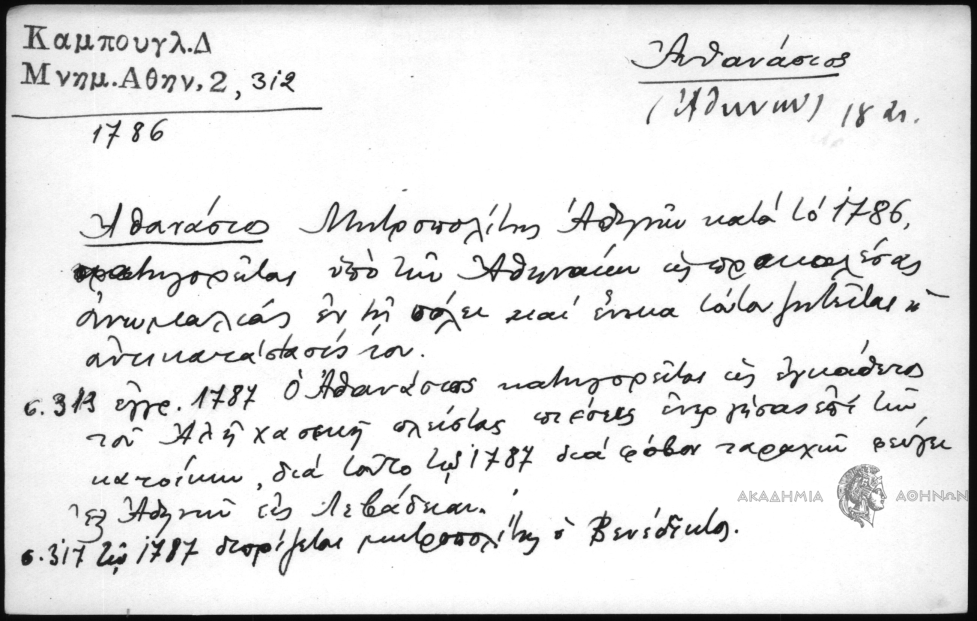 Καμπουγλ.Δ
Μνημ.Αθην.2, 312
1786
Ἀθανάσιος
(Ἀθηνῶν) 18 αι.
Ἀθανάσιος Μητροπολίτης Ἀθηνῶν κατά τό 1786,
κατηγορεῖται ὑπό τῶν Ἀθηναίων ὡς προκαλέσας
ἀνωμαλίας ἐν τῇ πόλει καί ἕνεκα τούτου ζητεῖται ἡ
ἀντικατάστασίς του.
σ. 313 ἔγγρ. 1787 Ὁ Ἀθανάσιος κατηγορεῖται ὡς ἐγκάθετος
τοῦ Ἀλῆ Χασεκῆ πλείστας πιέσεις ἐνεργήσας ἐπί τῶν
κατοίκων, διά τοῦτο τῷ 1787 διά φόβον ταραχῶν φεύγει
ἐξ Ἀθηνῶν εἰς Λεβάδειαν.
σ. 317 τῷ 1787 διορίζεται μητροπολίτης ὁ Βενέδικτος.
ΑΚΑΔΗΜΙΑ ΑΘΗΝΩΝ